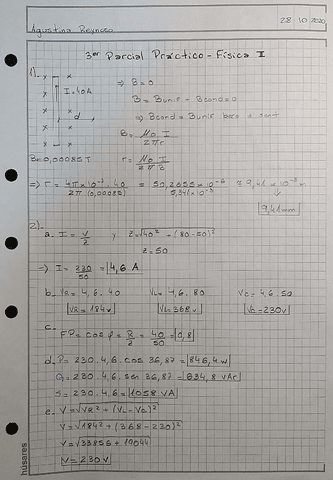 Agustina Reynoso
28 10 2020
3er Parcial Práctico - Física I
1).
I = 40A
d
B = 0,00085T
⇒ B = 0
B = Bunif - Bcond = 0
⇒ Bcond = Bunif
B = μ0 I / 2πr
r = μ0 I / 2π B
⇒ r = 4π x 10⁻⁷ . 40 / 2π (0,00085) = ≅ 9,41 x 10⁻³ m
9,41 mm
2).
a. I = V/Z y Z = √40² + (80-50)²
Z = 50
⇒ I = 230/50 = 4,6 A
b. VR = 4,6 . 40 VL = 4,6 . 80 VC = 4,6 . 50
VR = 184V VL = 368V VC = 230V
c.
FP = cos φ = R/Z = 40/50 = 0,8
d. P = 230 . 4,6 . cos 36,87 = 846,4 W
Q = 230 . 4,6 . sen 36,87 = 634,8 VAr
S = 230 . 4,6 = 1058 VA
e. V = √VR² + (VL - VC)²
V = √184² + (368 - 230)²
V = √33856 + 19044
V = 230V
húsares